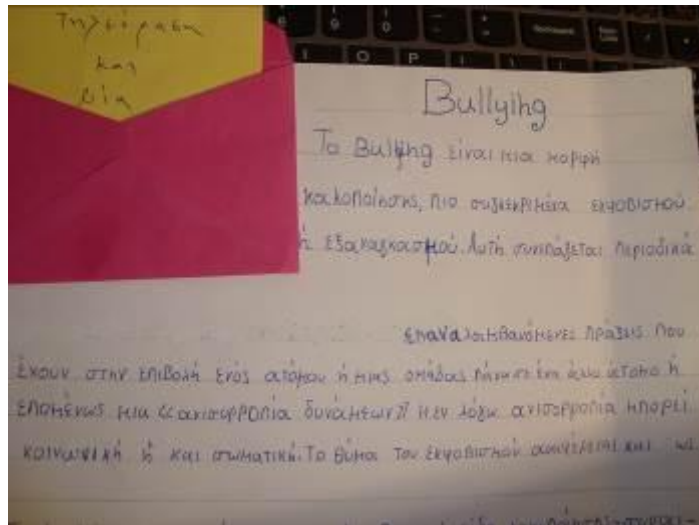 Τηλεόραση
και
βία
Bullying
Το Bullying είναι μια μορφή
κακοποίησης, πιο συγκεκριμένα εκφοβισμού
ή εξαναγκασμού. Αυτή συνιπάζεται περιοδικά
επαναλαμβανόμενες πράξεις που
έχουν στην επιβολή ενός ατόμου ή μιας ομάδας πάνω σε ένα άλλο άτομο ή
επομένως μια «ανισορροπία δυνάμεων» Η εν λόγω ανισορροπία μπορεί
κοινωνική ή και σωματική. Το θύμα του εκφοβισμού αναφέρεται και ως